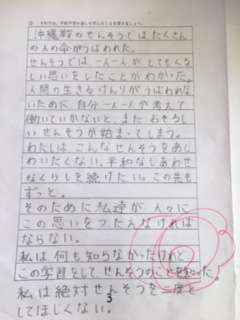 沖縄戦のせんそうではたくさん
の人の命がうばわれた。
せんそうでは一人一人がしてもくな
しい思いをしたことがわかった。
人間の生きるけんりがうばわれな
いために、自分一人一人が考えて
働いていかないと、また おそろし
い せんそうが始まってしまう。
わたしは、こんなせんそうをあじ
わいたくない。平和なしあわせ
なくらしを続けたい。この先も
ずっと。
そのために私達が 人々に
この思いをつたえなければ
ならない。
私は 何も知らなかったけれど、
この学習をして せんそうのことを知った。
私は絶対せんそうを二度と
してほしくない。
3